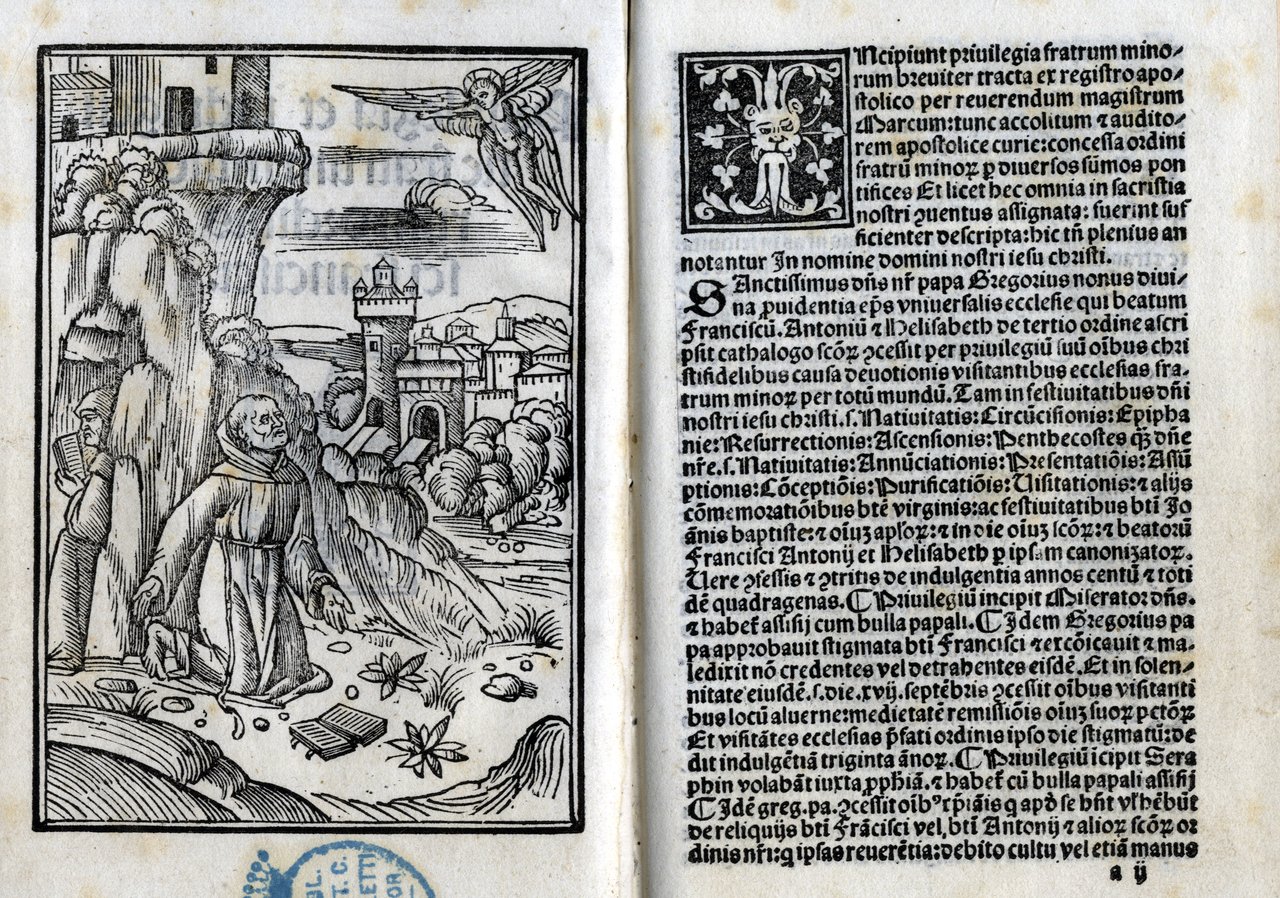 Incipiunt privilegia fratrum mino-
rum breuiter tracta ex registro apo-
stolico per reuerendum magistrum
Marcum: tunc accolitum ⁊ audito-
rem apostolice curie: concessa ordini
fratrū minoꝝ p diuersos sūmos pon
tifices Et licet hec omnia in sacristia
nostri ꝯuentus assignata: fuerint suf
ficienter descripta: hic tn̄ plenius an
notantur In nomine domini nostri iesu christi.
SAnctissimus dn̄s nr̄ papa Gregorius nonus diui-
na ꝓuidentia ep̄s vniuersalis ecclesie qui beatum
Franciscū. Antoniū ⁊ Helisabeth de tertio ordine ascri
psit cathalogo scōꝝ ꝯcessit per priuilegiū suū oībus chri
stifidelibus causa deuotionis visitantibus ecclesias fra-
trum minoꝝ per totū mundū. Tam in festiuitatibus dn̄i
nostri iesu christi. s. Natiuitatis: Circūcisionis: Epipha
nie: Resurrectionis: Ascensionis: Penthecostes q̄ꝫ dn̄e
nr̄e. s. Natiuitatis: Annūciationis: Presentatiōis: Assū
ptionis: Cōceptiōis: Purificatiōis: Uisitationis: ⁊ alijs
cōmemorationibus bt̄e virginis: ac festiuitatibus bt̄i Jo
ānis baptiste: ⁊ oīuꝫ apl'oꝝ: ⁊ in die oīuꝫ scōꝝ: ⁊ beatorū
Francisci Antonij et Helisabeth ꝑ ipsum canonizatoꝝ.
Uere ꝯfessis ⁊ ꝯtritis de indulgentia annos centū ⁊ toti
dē quadragenas. ⸿ Priuilegiū incipit Miserator dn̄s.
⁊ habet̄ assisij cum bulla papali. ⸿ Idem Gregorius pa
pa approbauit stigmata bt̄i Francisci ⁊ excōicauit ⁊ ma-
ledixit nō credentes vel detrahentes eisdē. Et in solen-
nitate eiusdē. s. die. xvij. septēbris ꝯcessit oībus visitanti
bus locū aluerne: medietatē remissiōis oīuꝫ suoꝝ pctōꝝ
Et visitātes ecclesias p̄fati ordinis ipso die stigmatū: de
dit indulgētiā triginta ānoꝝ. ⸿ Priuilegiū icipit Sera
phin volabāt iuxta ꝓph̄iā. ⁊ habet̄ cū bulla papali assisij
⸿ Idē greg. pa. ꝯcessit oībꝰ xp̄iāis q apd̄ se hn̄t vl' hēbūt
de reliquijs bt̄i Frācisci vel, bt̄i Antonij ⁊ alioꝝ scōꝝ or
dinis nr̄i: q ipsas reuerētia: debito cultu vel etiā manus
a ij